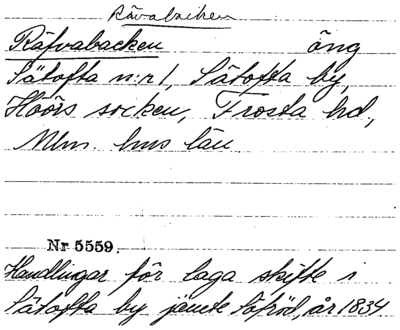 Rävabacken
Räfvabacken äng
Sätofta n:r 1, Sätofta by,
Höörs socken, Frosta hd,
Mlm. hus län
Nr 5559.
Handlingar för laga skifte i
Sätofta by jämte Löfröd, år 1834.